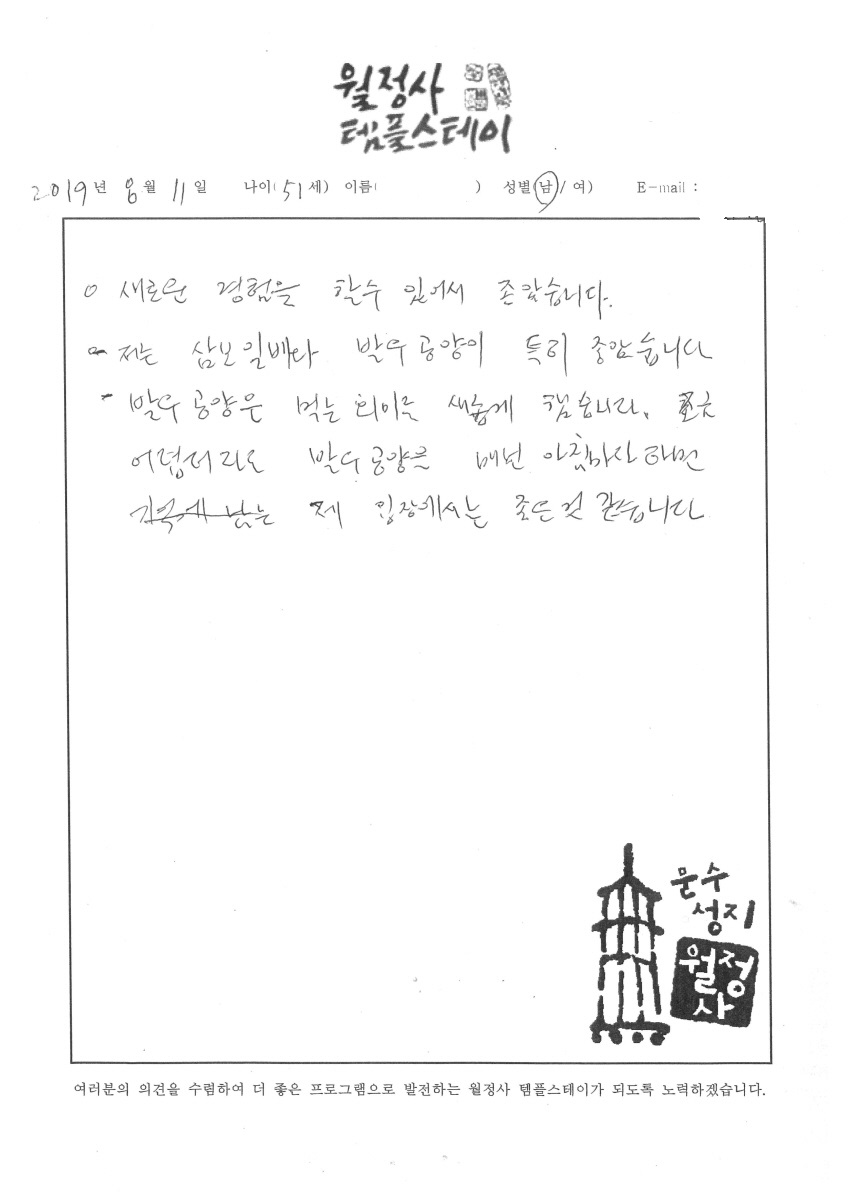 월정사
템플스테이
2019년 8월 11일 나이(51세) 이름( ) 성별(남/여) E-mail :
o 새로운 경험을 할수 있어서 존았습니다.
o 저는 삼보일배와 발우공양이 특히 좋았습니다
- 발우공양은 먹는 의미를 새롭게 했습니다. 조금
어렵더라도 발우공양을 매번 아침마다 하면
제 입장에서는 좋은것 같습니다
문수
성지
월정
사
여러분의 의견을 수렴하여 더 좋은 프로그램으로 발전하는 월정사 템플스테이가 되도록 노력하겠습니다.